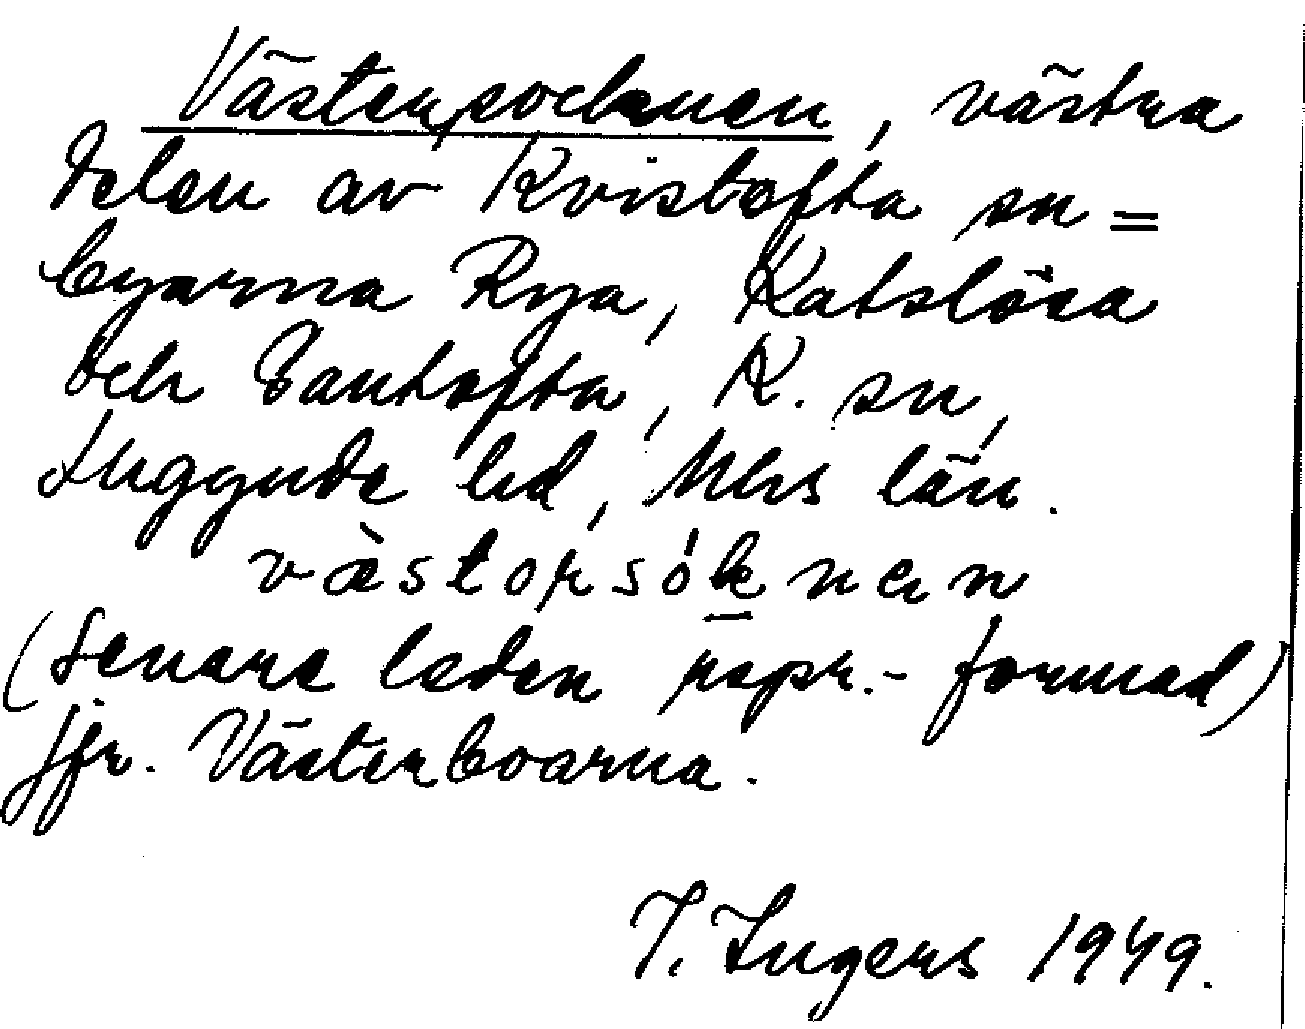 Västersocknen, västra
delen av Kvistofta sn =
byarna Rya, Katslösa
och Tantofta, K. sn,
Luggude hd, Mhs län.
væ̀storsóknen
(Senare leden rspr.-formad)
jfr. Västerboarna.
I. Ingers 1949.